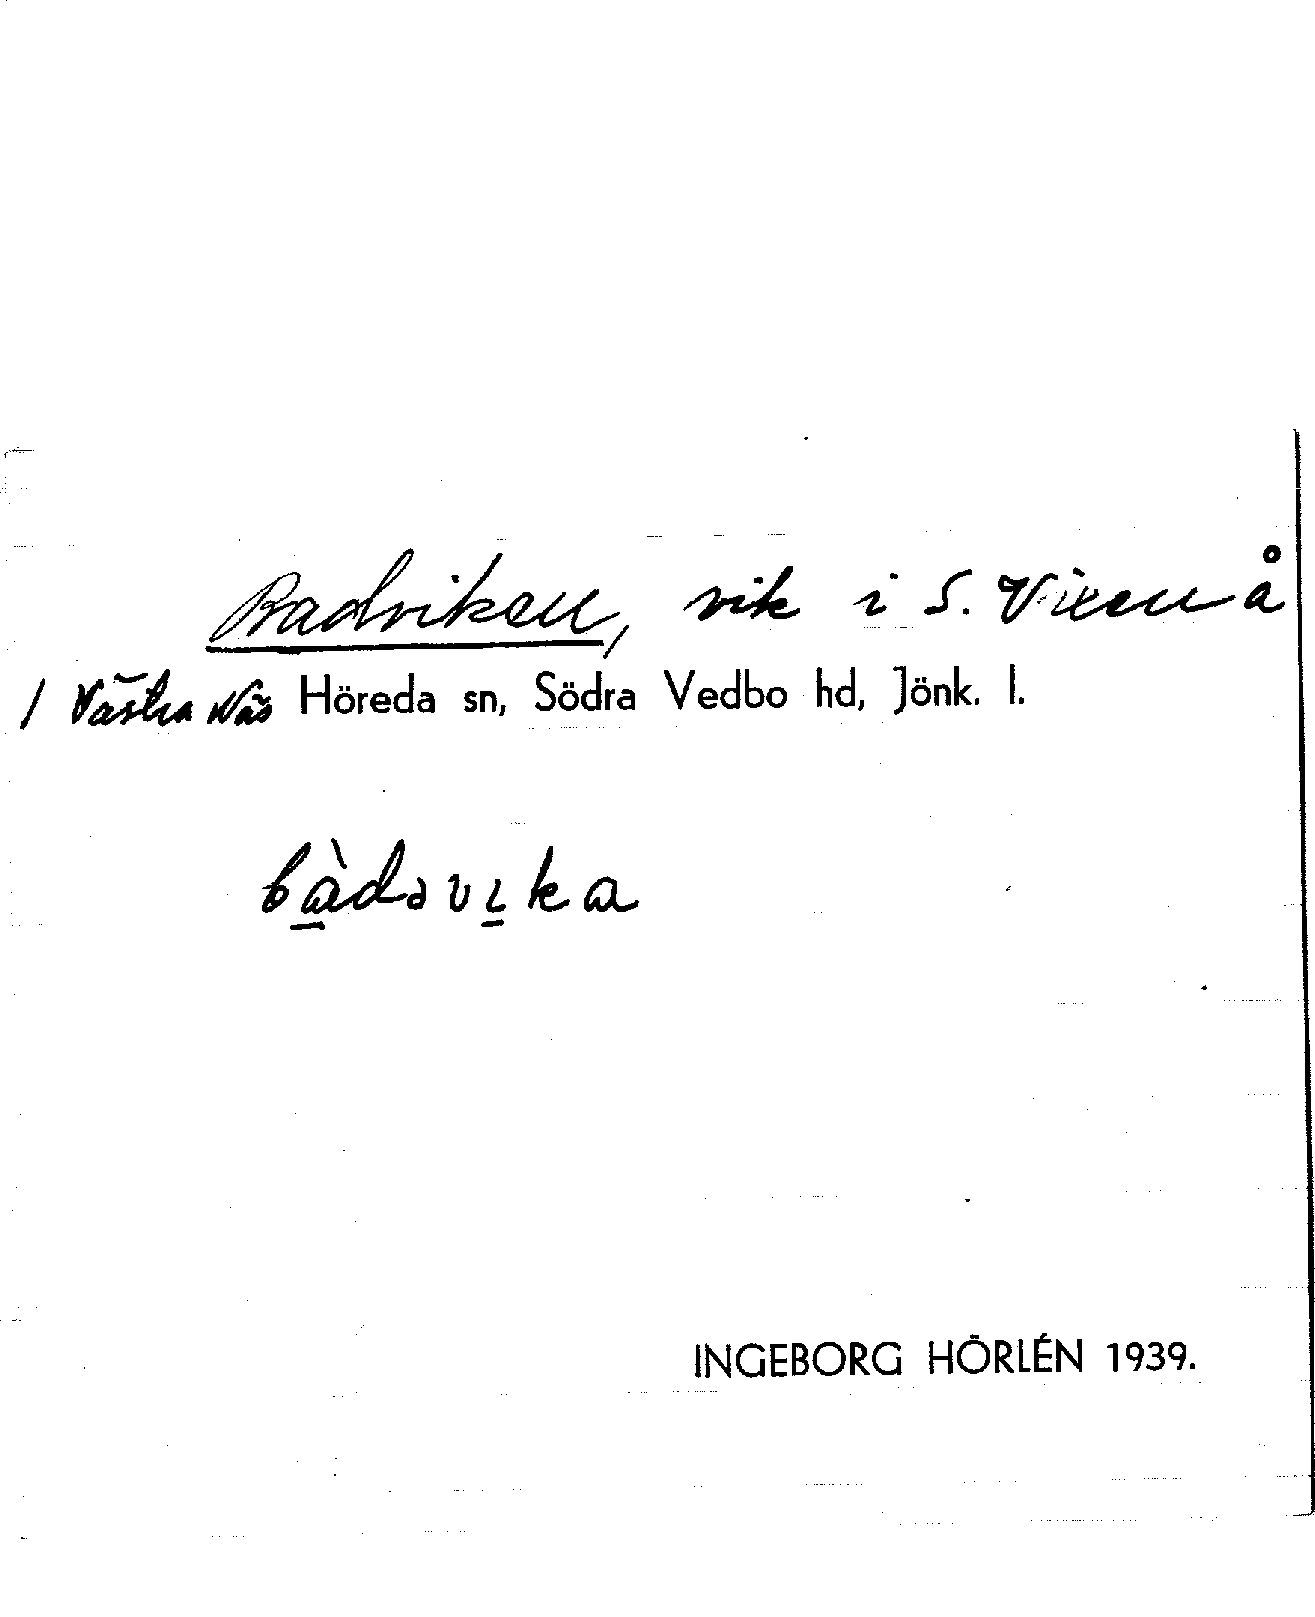 Badviken, vik i S. Vixen å
/ Västra Näs Höreda sn, Södra Vedbo hd, Jönk. l.
bàdəvika
INGEBORG HÖRLÉN 1939.